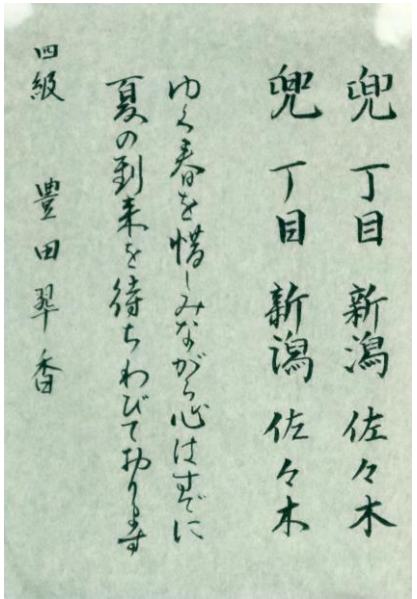 兜 丁目 新潟 佐々木
兜 丁目 新潟 佐々木
ゆく春を惜しみながら心はすでに
夏の到来を待ちわびております
四級 豊田翠香